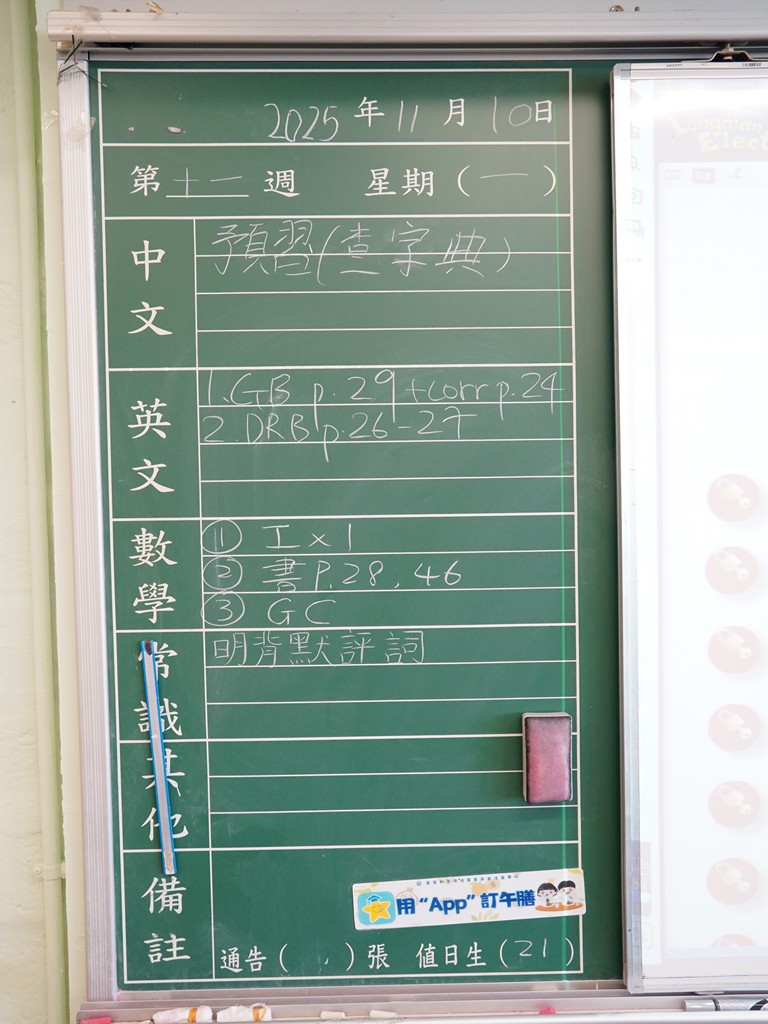 2025 年 11 月 10 日
第 十一 週 星期 (一)
中文
預習(查字典)
英文
1. GB p. 29 + corr p. 24
2. DRB p. 26-27
數學
① 工 x 1
② 書 P. 28, 46
③ GC
常識
明背默評詞
其他
備註
用 “App” 訂午膳
通告 ( ) 張 值日生 (21)
Longman
Elect